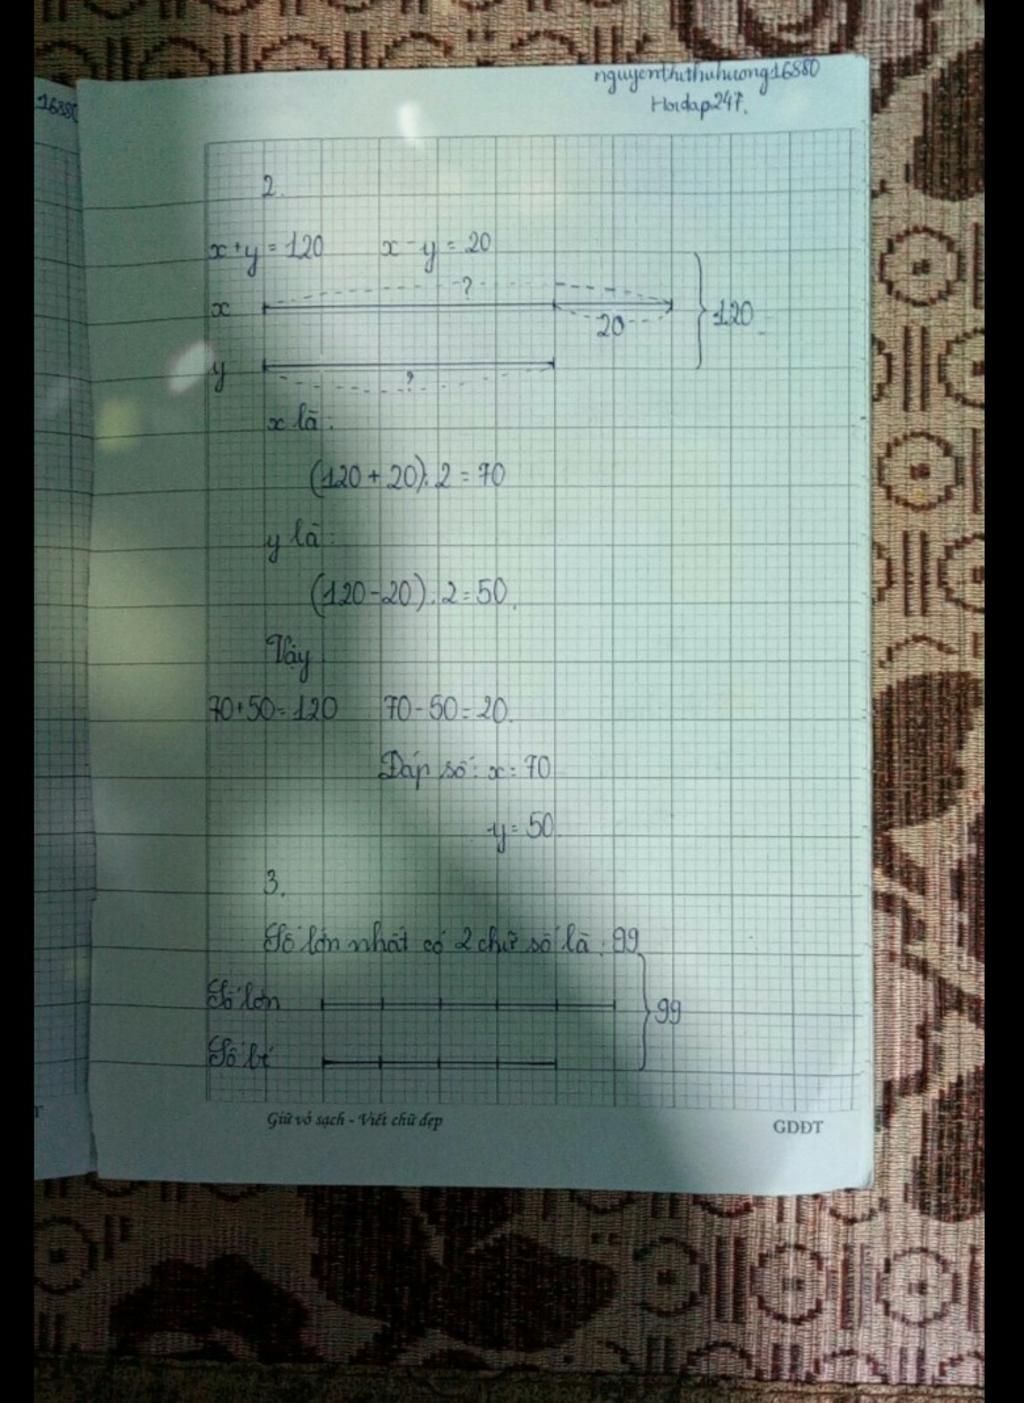 nguyenthithuhuong16880
Hoidap247.
16880
2.
x+y=120 x-y=20
?
x
20
120
y
?
x là:
(120+20):2=70
y là:
(120-20):2=50.
Vậy
70+50=120 70-50=20.
Đáp số: x=70
y=50.
3.
Số lớn nhất có 2 chữ số là: 99
Số lớn
99
Số bé
Giữ vở sạch - Viết chữ đẹp
GDĐT
T